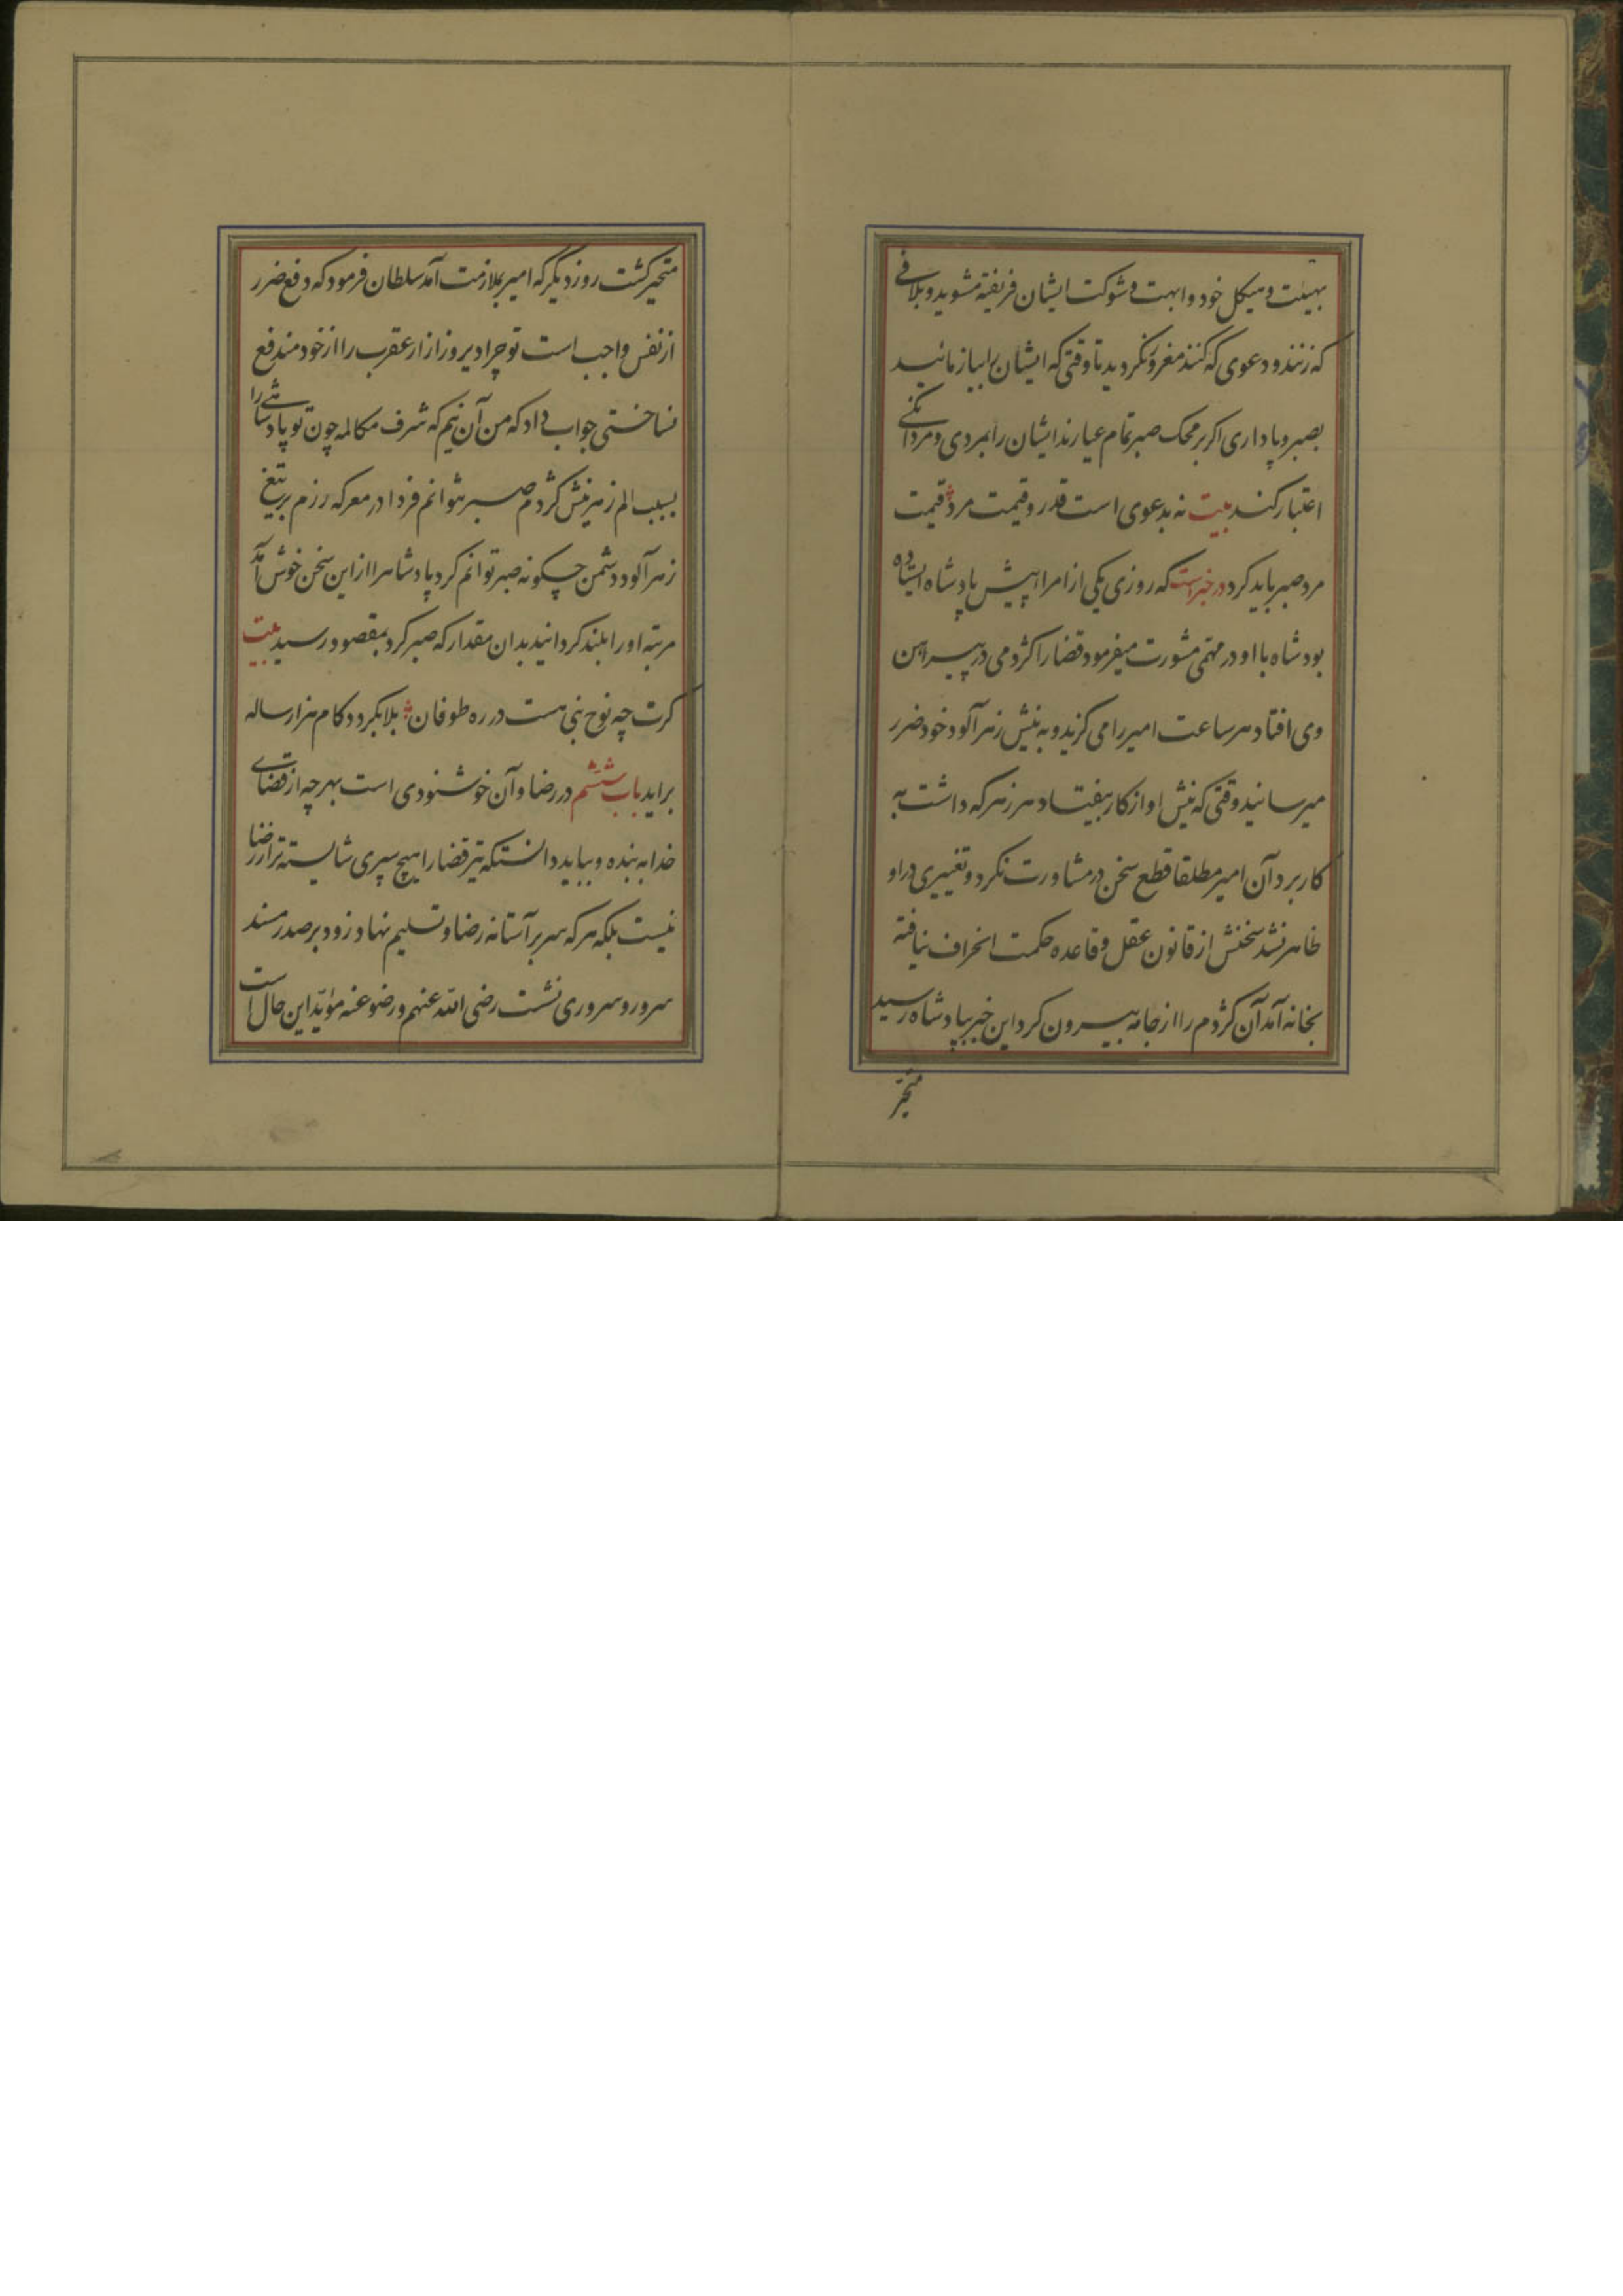 بهیئت و هیکل خود و ابهت و شوکت ایشان فریفته مشوید و بلافی
که زنند و دعوی که کنند مغرور نگردید تا وقتی که ایشان را بیازمائید
بصبر و پاداری اگر بر محک صبر تمام عیارند ایشان را بمردی و مردانگی
اعتبار کنند بیت نه بدعوی است قدر و قیمت مرد قیمت
مرد صبر باید کرد در خبر است که روزی یکی از امرا پیش پادشاه ایستاده
بود شاه با او در مهمی مشورت میفرمود قضا را کژدمی در پیراهن
وی افتاد هر ساعت امیر را می کزید و به نیش زهر آلود خود ضرر
میرسانید وقتی که نیش او از کار بیفتاد و هر زهر که داشت به
کار برد آن امیر مطلقا قطع سخن در مشاورت نکرد و تغییری در او
ظاهر نشد سخنش از قانون عقل و قاعده حکمت انحراف نیافته
بخانه آمد آن کژدم را از جامه بیرون کرد این خبر بپادشاه رسید
متحیر
متحیر کشت روز دیگر که امیر بملازمت آمد سلطان فرمود که دفع ضرر
از نفس واجب است تو چرا دیروز ازار عقرب را از خود مندفع
نساختی جواب داد که من آن نیم که شرف مکالمه چون تو پادشاهی را
بسبب الم زهر نیش کژدم صبر نتوانم فردا در معرکه رزم بر تیغ
زهر آلود دشمن چکونه صبر توانم کرد پادشاه را از این سخن خوش آمد
مرتبه او را بلند کردانید بدان مقدار که صبر کرد بمقصود رسید بیت
کرت چه نوح نبی هست در ره طوفان بلا بگردد و کام هزار ساله
براید باب ششم در رضا و آن خوشنودی است بهر چه از قضای
خدا به بنده و بباید دانستکه تیر قضا را هیچ سپری شایسته تر از رضا
نیست بلکه هر که سر بر آستانه رضا و تسلیم نهاد زود بر صدر مسند
سرور و سروری نشست رضی الله عنهم و رضو عنه مؤید این حال است